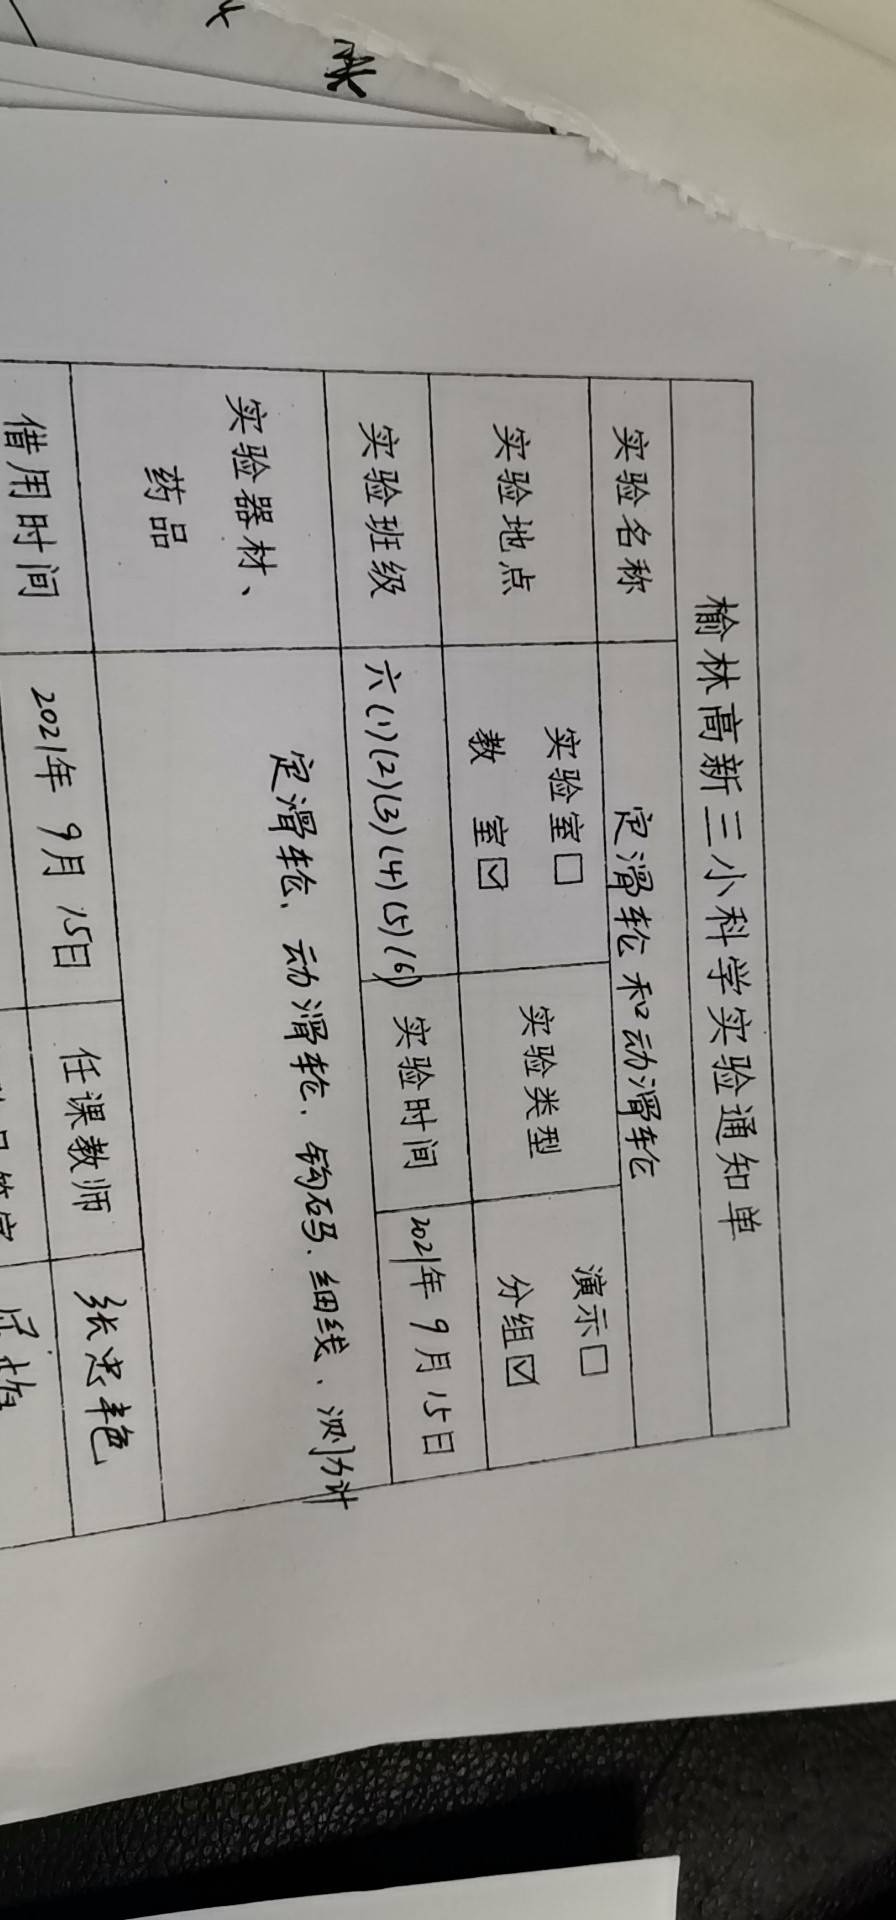 榆林高新三小科学实验通知单
实验名称 定滑轮和动滑轮
实验地点 实验室☐ 教 室☑ 实验类型 演示☐ 分组☑
实验班级 六(1)(2)(3)(4)(5)(6) 实验时间 2021年9月15日
实验器材、
药品
定滑轮、动滑轮、钩码、细线、测力计
借用时间 2021年9月15日 任课教师 张忠艳